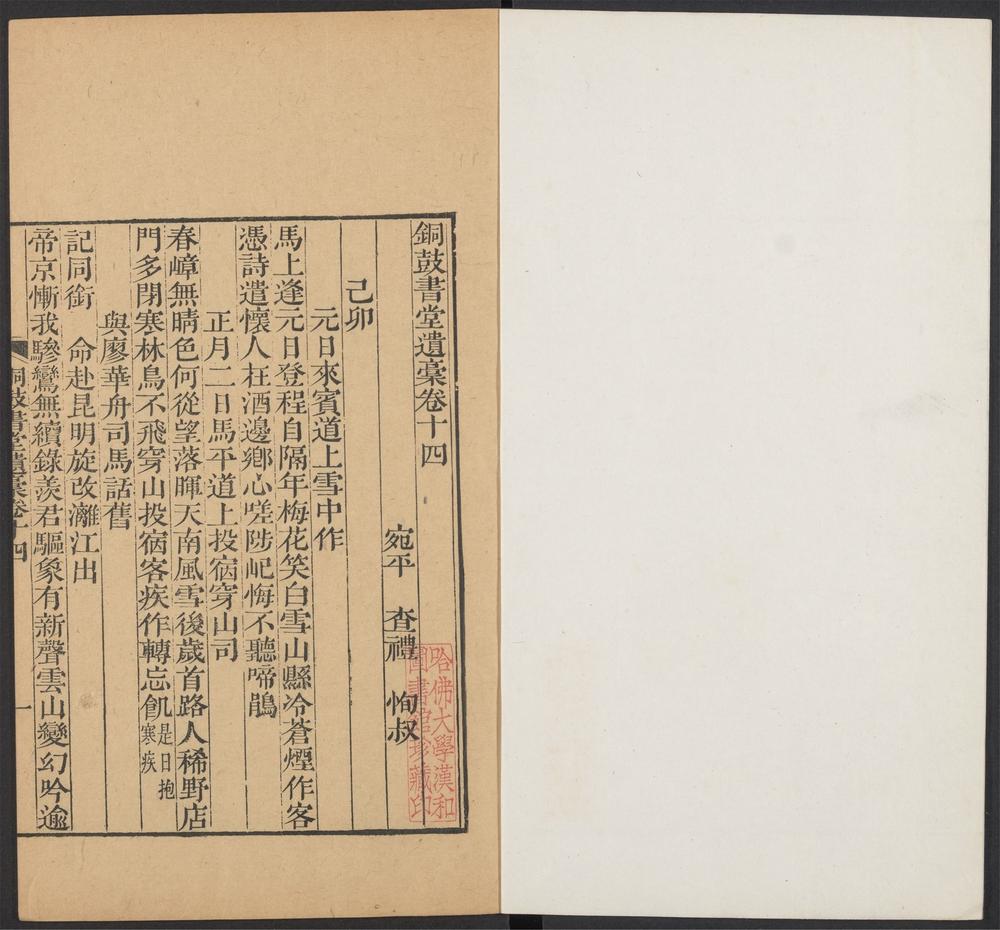 銅鼓書堂遺稾卷十四
宛平　查禮　恂叔
己卯
元日來賓道上雪中作
馬上逢元日登程自隔年梅花笑白雪山縣冷蒼煙作客
憑詩遣懷人枉酒邊鄉心嗟陟屺悔不聽啼鵑
正月二日馬平道上投宿穿山司
春嶂無晴色何從望落暉天南風雪後歲首路人稀野店
門多閉寒林鳥不飛穿山投宿客疾作轉忘飢是日抱寒疾
與廖華舟司馬話舊
記同銜　命赴昆明旋改灕江出
帝京慚我驂鸞無續錄羨君驅象有新聲雲山變幻吟逾
銅鼓書堂遺稾卷十四
一
哈佛大學漢和
圖書館珍藏印